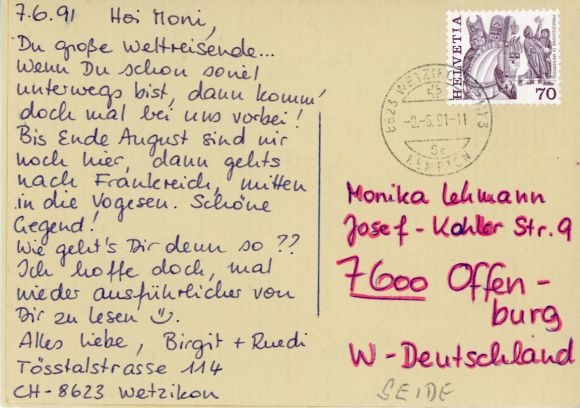 7.6.91 Hoi Moni,
Du große Weltreisende...
Wenn Du schon soviel
unterwegs bist, dann komm'
doch mal bei uns vorbei!
Bis Ende August sind wir
noch hier, dann gehts
nach Frankreich, mitten
in die Vogesen. Schöne
Gegend!
Wie geht's Dir denn so ??
Ich hoffe doch, mal
wieder ausführlicher von
Dir zu lesen
Alles liebe, Birgit + Ruedi
Tösstalstrasse 114
CH-8623 Wetzikon
HELVETIA
70
8623 WETZIKON
-8.-6.91-11
KEMPTEN
Monika Lehmann
Josef-Kohler Str. 9
7600 Offen-
burg
W-Deutschland
SEIDE